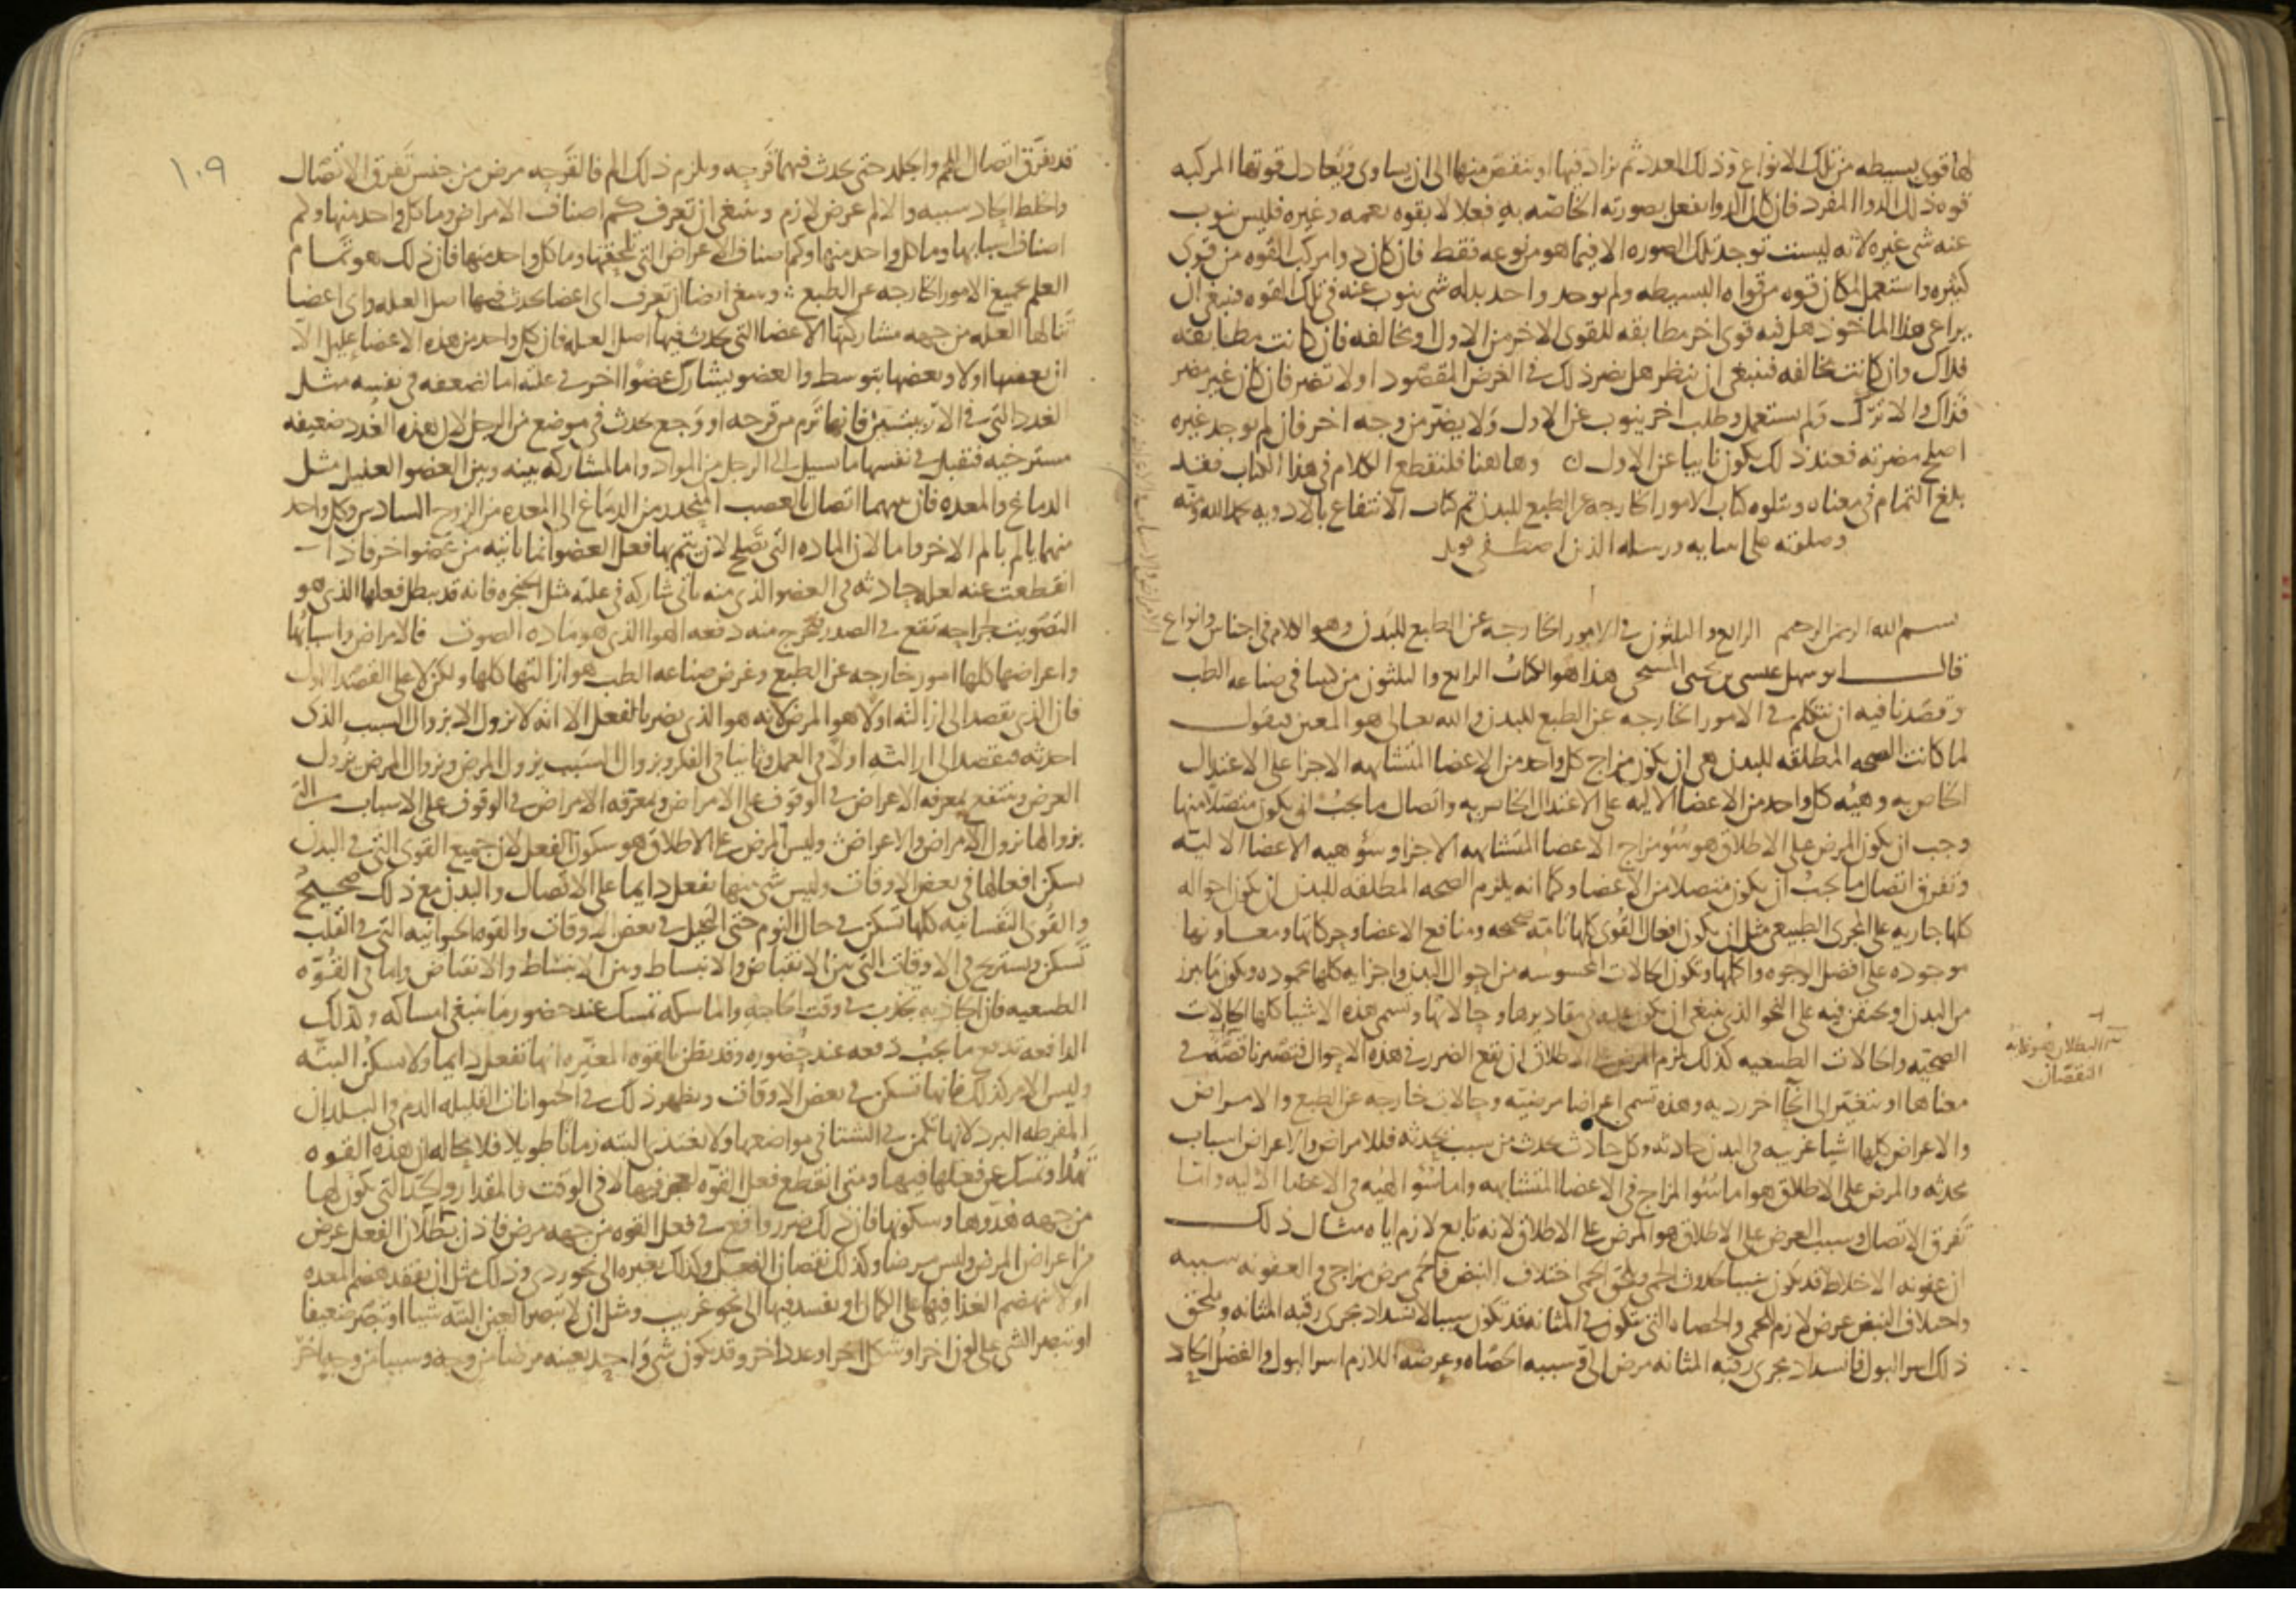 لها قوى بسيطه من تلك الانواع وذلك العدد ثم نزاد فيها او ننقص منها الى ان يساوى ويعادل قوتها المركبه
قوه ذلك الدوا المفرد فان كان الدوا يفعل بصورته الخاصه به فعلا لا بقوه تعمه وغيره فليس ينوب
عنه شى غيره لانه ليست توجد تلك الصوره الا فيما هو من نوعه فقط فان كان دوا مركب القوه من قوى
كثيره واستعمل لمكان قوه من قواه البسيطه ولم يوجد واحد بدله شى ينوب عنه فى تلك القوه فينبغى ان
يراعى هذا الماخوذ هل فيه قوى اخر مطابقه للقوى الاخر من الاول او مخالفه فان كانت مطابقه
فذاك وان كانت مخالفه فينبغى ان ينظر هل يضر ذلك فى الغرض المقصود او لا تضر فان كان غير مضر
فذاك والا ترك ولم يستعمل وطلب اخر ينوب عن الاول ولا يضر من وجه اخر فان لم يوجد غيره
اصلح مضرته فعند ذلك يكون نايبا عن الاول وهاهنا فلنقطع الكلام فى هذا الكتاب فقد
بلغ التمام فى معناه ويتلوه كتاب الامور الخارجه عن الطبع للبدن تم كتاب الانتفاع بالادويه بحمد الله ومنه
وصلوته على انبيايه ورسله الذين اصطفى
بسم الله الرحمن الرحيم الرابع والثلثون فى الامور الخارجه عن الطبع للبدن وهو الكلام فى اجناس وانواع
الامراض والاسباب والاعراض
قال ابو سهل عيسى بن يحيى المسيحى هذا هو الكتاب الرابع والثلثون من كتبنا فى صناعه الطب
وقصدنا فيه ان نتكلم فى الامور الخارجه عن الطبع للبدن والله تعالى هو المعين فنقول
لما كانت الصحه المطلقه للبدن هى ان يكون مزاج كل واحد من الاعضا المتشابهه الاجزا على الاعتدال
الخاص به وهيه كل واحد من الاعضا الاليه على الاعتدال الخاص به واتصال ما يجب ان يكون متصلا منها
وجب ان يكون المرض على الاطلاق هو سو مزاج الاعضا المتشابهه الاجزا وسو هيه الاعضا الاليه
وتفرق اتصال ما يجب ان يكون متصلا من الاعضا وكما انه يلزم الصحه المطلقه للبدن ان يكون احواله
كلها جاريه على المجرى الطبيعى مثل ان يكون افعال القوى كلها تامه صحيحه ومنافع الاعضا وحركاتها ومعاونها
موجوده على افضل الوجوه واكملها وتكون الحالات المحسوسه من احوال البدن واجزايه كلها محموده ويكون ما يبرز
من البدن او يحتقن فيه على النحو الذى ينبغى ان يكون عليه فى مقاديرها وحالاتها وتسمى هذه الاشيا كلها الحالات
الصحيه والحالات الطبيعيه كذلك يلزم المرض على الاطلاق ان يقع الضرر فى هذه الاحوال فتصير ناقصه فى
نه البطلان هو نهايه
النقصان
معناها او تتغير الى انحا اخر رديه وهذه تسمى اعراضا مرضيه وحالات خارجه عن الطبع والامراض
والاعراض كلها اشيا غريبه فى البدن حادثه وكل حادث يحدث من سبب يحدثه فللامراض والاعراض اسباب
تحدثه والمرض على الاطلاق هو اما سو المزاج فى الاعضا المتشابهه واما سو الهيه فى الاعضا الاليه واما
تفرق الاتصال وسبب العرض على الاطلاق هو المرض على الاطلاق لانه تابع لازم اياه مثال ذلك
ان عفونه الاخلاط قد يكون سببا لحدوث الحمى ويلحق الحمى اختلاف النبض فالحمى مرض مزاجى والعفونه سببه
واختلاف النبض عرض لازم للحمى والحصاه التى تتكون فى المثانه قد تكون سببا لانسداد مجرى رقبه المثانه ويلحق
ذلك اسر البول فانسداد مجرى رقبه المثانه مرض الى وسببه الحصاه وعرضه اللازم اسر البول والفضل الحاد
١٠٩
قد يفرق اتصال اللحم والجلد حتى يحدث فيهما قرحه ويلزم ذلك الم فالقرحه مرض من جنس تفرق الاتصال
والخلط الحاد سببه والالم عرض لازم وينبغى ان تعرف كم اصناف الامراض وما كل واحد منها وكم
اصناف اسبابها وما كل واحد منها وكم اصناف الاعراض التى تلحقها وما كل واحد منها فان ذلك هو تمام
العلم بجميع الامور الخارجه عن الطبع وينبغى ايضا ان تعرف اى اعضا يحدث فيها اصل العله واى اعضا
تنالها العله من جهه مشاركتها الاعضا التى يحدث فيها اصل العله فان كل واحد من هذه الاعضا عليل الا
ان بعضها اولا وبعضها بتوسط والعضو يشارك عضوا اخر فى علته اما لضعفه فى نفسه مثل
الغدد التى فى الاربيتين فانها ترم من قرحه او وجع يحدث فى موضع من الرجل لان هذه الغدد ضعيفه
مسترخيه فتقبل فى نفسها ما يسيل الى الرجل من المواد واما لمشاركه بينه وبين العضو العليل مثل
الدماغ والمعده فان بينهما اتصال بالعصب المنحدر من الدماغ الى المعده من الزوج السادس وكل واحد
منهما يالم بالم الاخر واما لان الماده التى تصلح لان يتم بها فعل العضو انما تاتيه من عضو اخر فاذا
انقطعت عنه لعله حادثه فى العضو الذى منه تاتى شاركه فى علته مثل الحنجره فانه قد يبطل فعلها الذى هو
التصويت لجراحه تقع فى الصدر فتخرج منه دفعه الهوا الذى هو ماده الصوت فالامراض واسبابها
واعراضها كلها امور خارجه عن الطبع وغرض صناعه الطب هو ازالتها كلها ولكن لا على القصد الاول
فان الذى يقصد الى ازالته اولا هو المرض لانه هو الذى يضر بالفعل الا انه لا يزول الا بزوال السبب الذى
احدثه فيقصد الى ازالته اولا فى العمل وثانيا فى الفكر وبزوال السبب يزول المرض وبزوال المرض يزول
العرض وينتفع بمعرفه الاعراض فى الوقوف على الامراض وبمعرفه الامراض فى الوقوف على الاسباب التى
بزوالها تزول الامراض والاعراض وليس المرض على الاطلاق هو سكون الفعل لان جميع القوى التى فى البدن
تسكن افعالها فى بعض الاوقات وليس شى منها يفعل دايما على الاتصال والبدن مع ذلك صحيح
والقوى النفسانيه كلها تسكن فى حال النوم حتى التخيل فى بعض الاوقات والقوه الحيوانيه التى فى القلب
تسكن وتستريح فى الاوقات التى بين الانقباض والانبساط وبين الانبساط والانقباض واما فى القوه
الطبيعيه فان الجاذبه تجذب فى وقت الحاجه والماسكه تمسك عند حضور ما ينبغى امساكه وكذلك
الدافعه تدفع ما يجب دفعه عند حضوره وقد يظن بالقوه المغيره انها تفعل دايما ولا تسكن البته
وليس الامر كذلك فانها تسكن فى بعض الاوقات ويظهر ذلك فى الحيوانات القليله الدم فى البلدان
المفرطه البرد لانها تكمن فى الشتا فى مواضعها ولا تغتذى البته زمانا طويلا فلا محاله ان هذه القوه
تهدا وتمسك عن فعلها فيها ومتى انقطع فعل القوه لا فى الوقت والمقدار والحد التى يكون لها
من جهه هدوها وسكونها فان ذلك ضرر واقع فى فعل القوه من جهه مرض فاذن بطلان الفعل عرض
من اعراض المرض وليس مرضا وكذلك نقصان الفعل وكذلك تغيره الى نحو ردى وذلك مثل ان يفقد هضم المعده
او لا ينهضم الغذا فيها على الكمال او يفسد فيها الى نحو غريب ومثل ان لا تبصر العين البته شيا او تبصر ضعيفا
او تبصر الشى على لون اخر او شكل اخر او عدد اخر وقد يكون شى واحد بعينه مرضا من وجه وسببا من وجه اخر